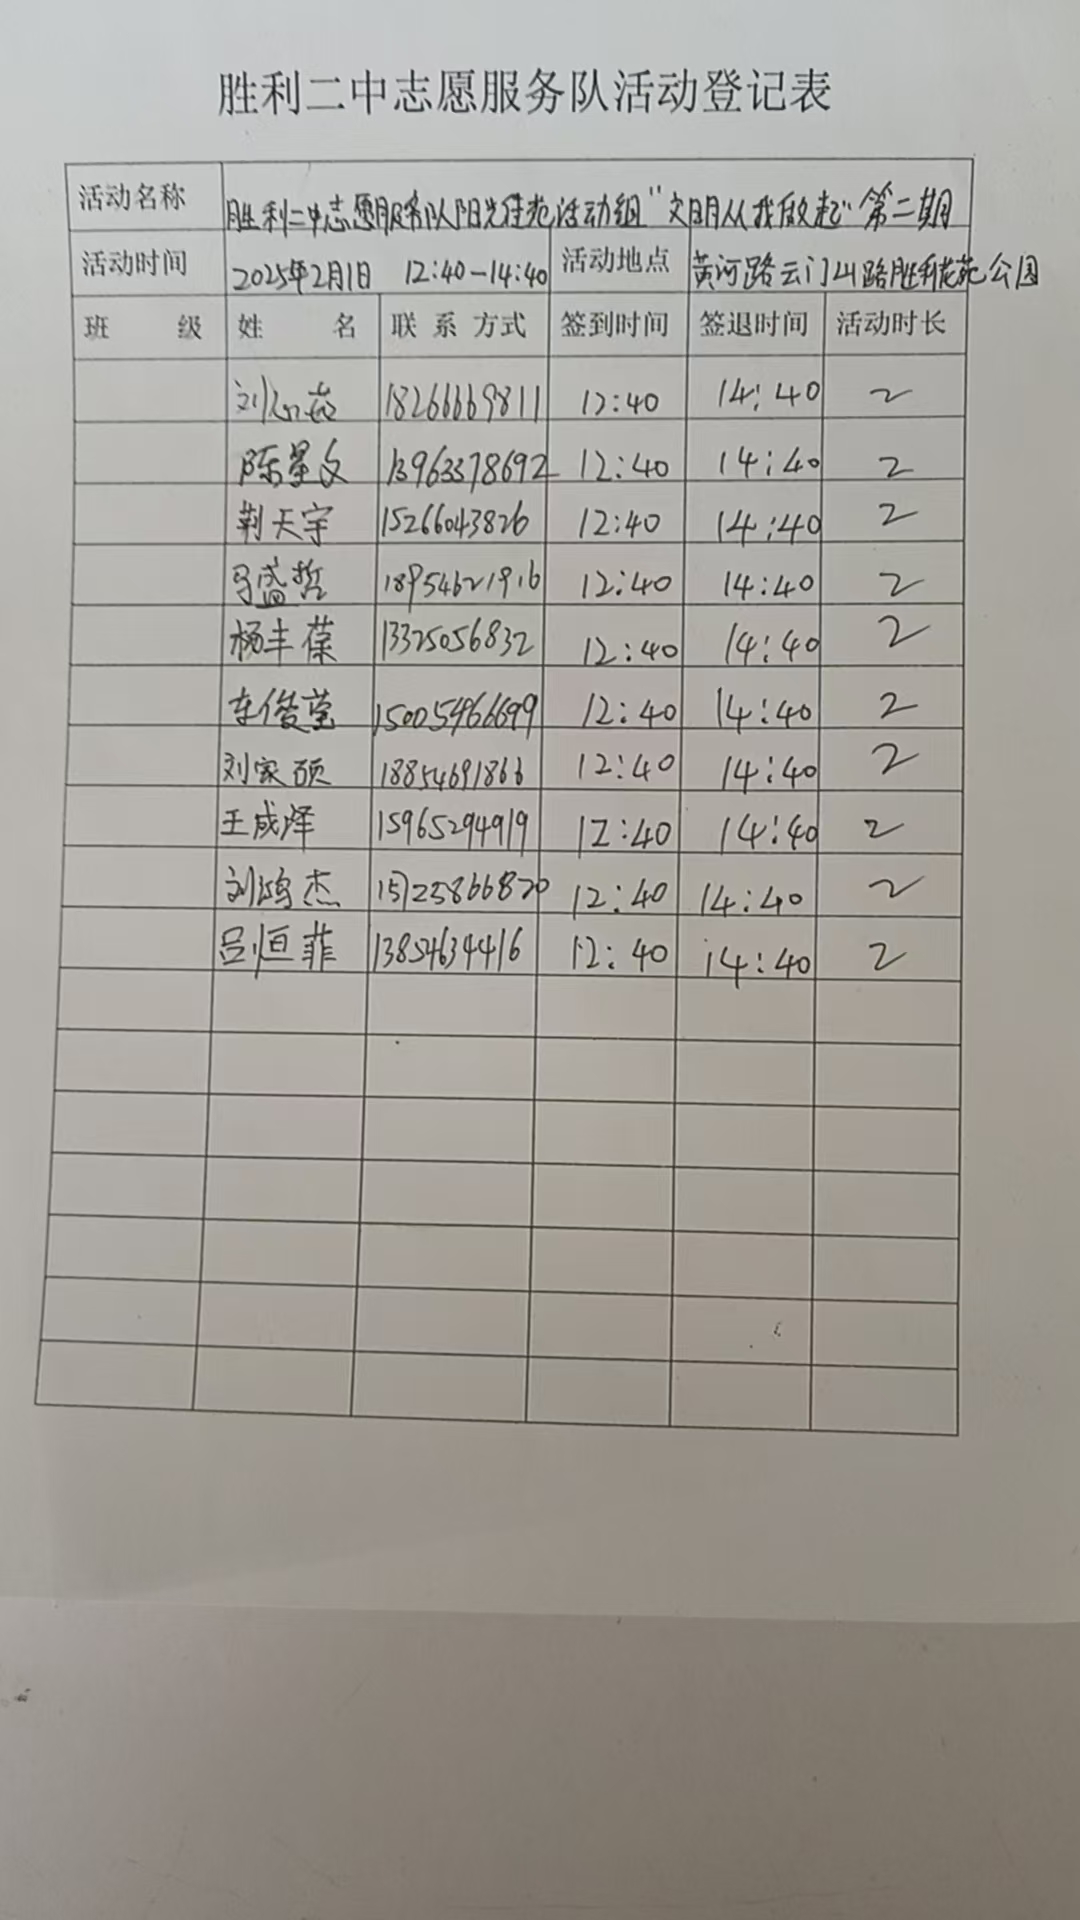 胜利二中志愿服务队活动登记表
活动名称 胜利二中志愿服务队阳光佳苑活动组"文明从我做起"第二期
活动时间 2025年2月1日 12:40-14:40 活动地点 黄河路云门山路胜利花苑公园
班 级 姓 名 联系方式 签到时间 签退时间 活动时长
刘 18266669811 12:40 14:40 2
陈星文 13963378692 12:40 14:40 2
荆天宇 15266043826 12:40 14:40 2
马盛哲 18954621916 12:40 14:40 2
杨丰葆 13325056832 12:40 14:40 2
车俊莹 15005466699 12:40 14:40 2
刘家硕 18854691866 12:40 14:40 2
王成泽 15965294919 12:40 14:40 2
刘鸿杰 15725866820 12:40 14:40 2
吕恒菲 13854634416 12:40 14:40 2